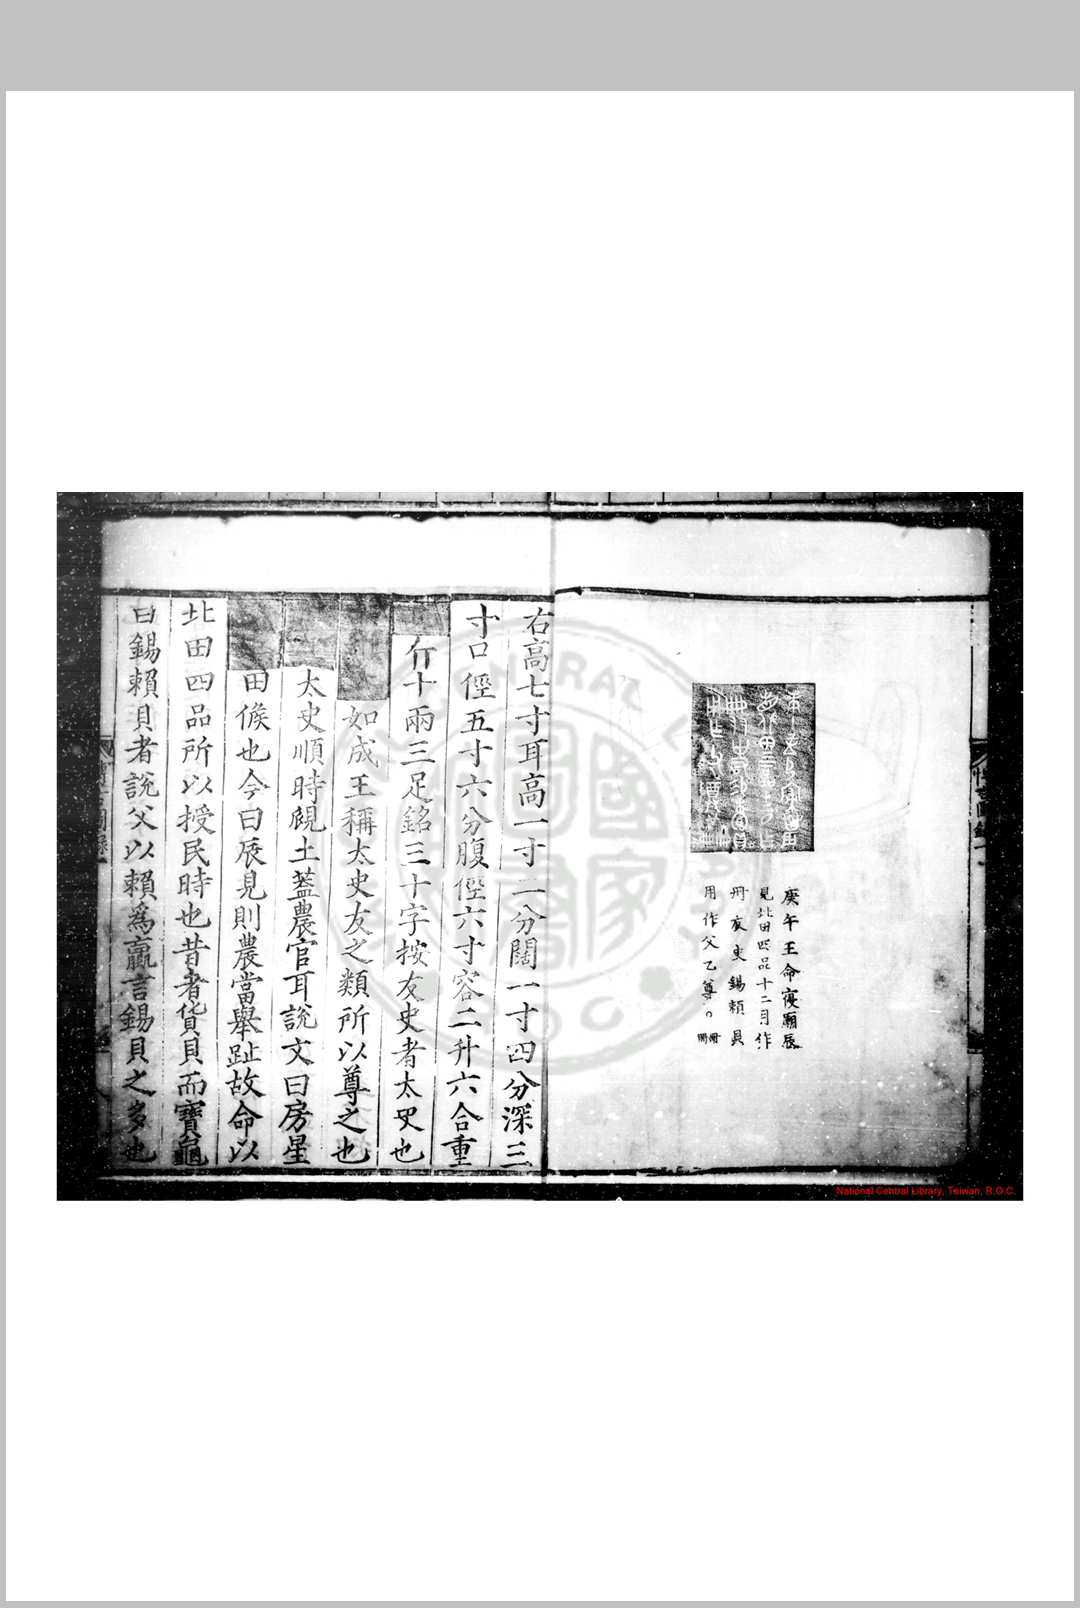 庚午王命寑廟辰
見北田四品十二月作
冊友史錫賴貝
用作父乙尊
冊冊
右高七寸耳高一寸二分闊一寸四分深三
寸口徑五寸六分腹徑六寸容二升六合重
行十兩三足銘三十字按友史者太史也
如成王稱太史友之類所以尊之也
太史順時覛土蓋農官耳說文曰房星
田候也今曰辰見則農當舉趾故命以
北田四品所以授民時也昔者貨貝而寶龜
曰錫賴貝者說父以賴爲贏言錫貝之多也
National Central Library, Taiwan, R.O.C.